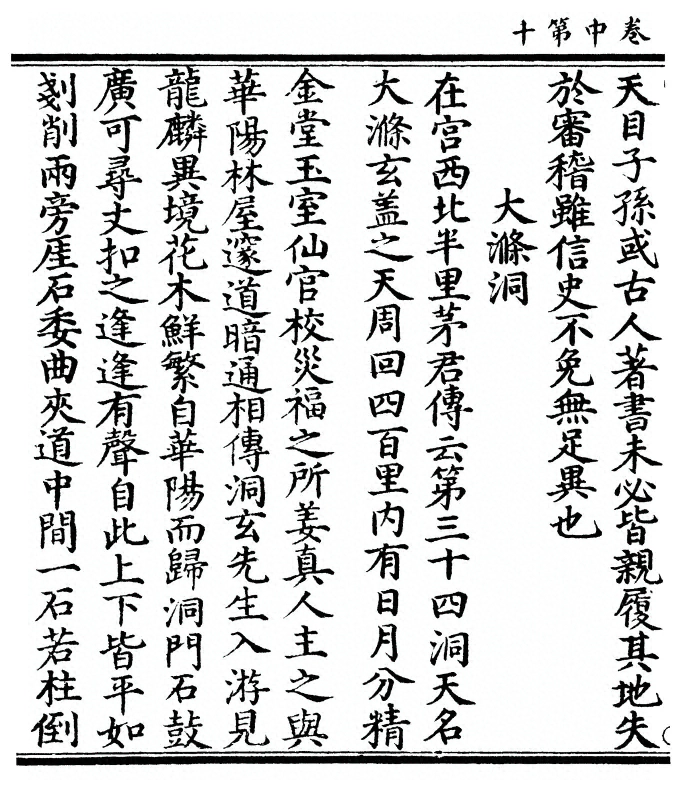 卷中第十
天目子孫或古人著書未必皆親履其地失
於審稽雖信史不免無足異也
大滌洞
在宫西北半里茅君傳云第三十四洞天名
大滌玄盖之天周回四百里内有日月分精
金堂玉室仙官校災福之所姜真人主之與
華陽林屋邃道暗通相傳洞玄先生入游見
龍麟異境花木鮮繁自華陽而歸洞門石鼓
廣可尋丈扣之逢逢有聲自此上下皆平如
剗削兩旁厓石委曲夾道中間一石若柱倒